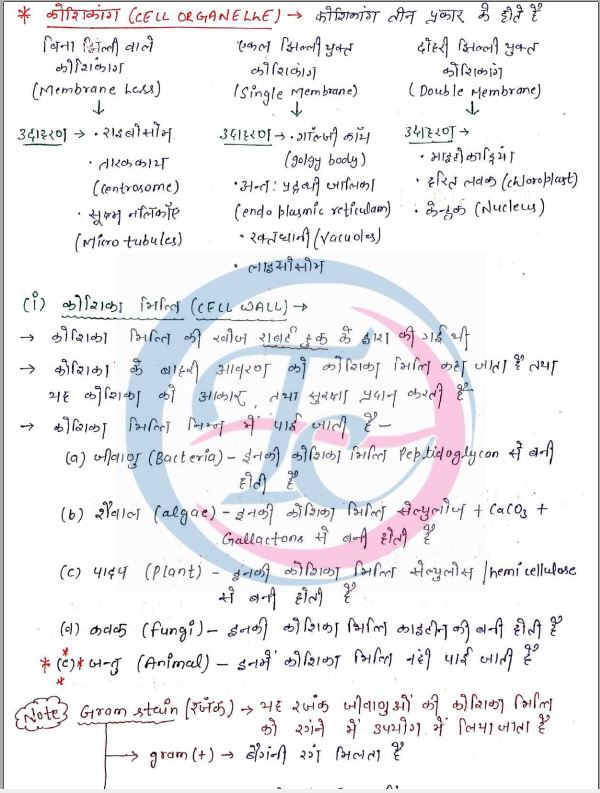 * कोशिकांग (CELL ORGANELLE) → कोशिकांग तीन प्रकार के होते हैं
बिना झिल्ली वाले एकल झिल्ली युक्त दोहरी झिल्ली युक्त
कोशिकांग कोशिकांग कोशिकांग
(Membrane Less) (Single Membrane) (Double Membrane)
↓ ↓ ↓
उदाहरण → • राइबोसोम उदाहरण → • गॉल्जी काय उदाहरण →
(golgy body) • माइटोकाड्रिया
• तारककाय • अन्त: प्रद्रव्यी जालिका • हरित लवक (chloroplast)
(centrosome) (endo plasmic reticulam) • केन्द्रक (Nucleus)
• सूक्ष्म नलिकाएँ • रक्तधानी (Vacuoles)
(Micro tubules) • लाइसोसोम
(i) कोशिका भित्ति (CELL WALL) →
→ कोशिका भित्ति की खोज राबर्ट हुक के द्वारा की गई थी
→ कोशिका के बाहरी आवरण को कोशिका भित्ति कहा जाता है तथा
यह कोशिका को आकार, तथा सुरक्षा प्रदान करती है
→ कोशिका भित्ति निम्न में पाई जाती है –
(a) जीवाणु (Bacteria) – इनकी कोशिका भित्ति Peptidoglycon से बनी
होती है
(b) शैवाल (algae) – इनकी कोशिका भित्ति सेल्युलोज + CaCO3 +
Gallactons से बनी होती है
(c) पादप (Plant) – इनकी कोशिका भित्ति सेल्युलोस /hemicellulose
से बनी होती है
(d) कवक (fungi) – इनकी कोशिका भित्ति काइटीन की बनी होती है
* (e) * जन्तु (Animal) – इनमें कोशिका भित्ति नही पाई जाती है
*
Note Gram stain (रंजक) → यह रंजक जीवाणुओं की कोशिका भित्ति
को रंगने में उपयोग में लिया जाता है
→ gram (+) → बैंगनी रंग मिलता है